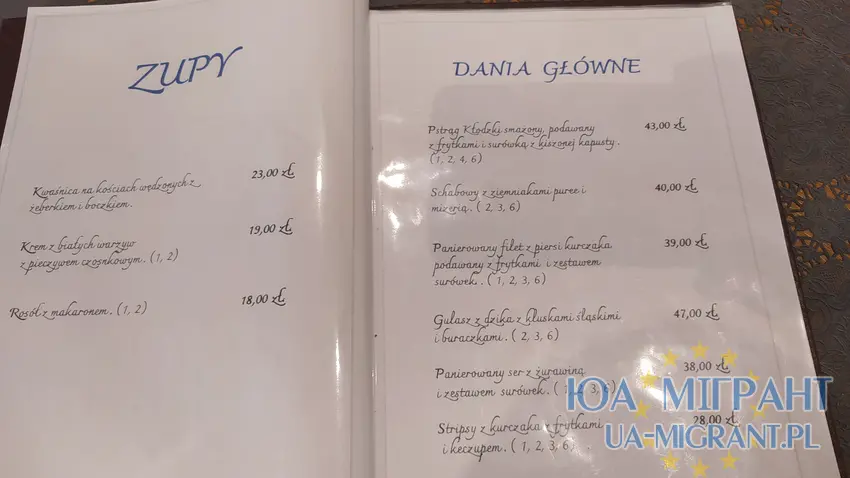 ZUPY
Kwaśnica na kościach wędzonych z
żeberkiem i boczkiem.
23,00 zł
Krem z białych warzyw
z pieczywem czosnkowym. (1, 2)
19,00 zł
Rosół z makaronem. (1, 2)
18,00 zł
DANIA GŁÓWNE
Pstrąg Kłodzki smażony, podawany
z frytkami i surówką z kiszonej kapusty.
(1, 2, 4, 6)
43,00 zł
Schabowy z ziemniakami puree i
mizerią. ( 2, 3, 6)
40,00 zł
Panierowany filet z piersi kurczaka
podawany z frytkami i zestawem
surówek. ( 1, 2, 3, 6)
39,00 zł
Gulasz z dzika z kluskami śląskimi
i buraczkami. ( 2, 3, 6)
47,00 zł
Panierowany ser z żurawiną
i zestawem surówek. ( 1, 2, 3, 6)
38,00 zł
Stripsy z kurczaka z frytkami
i keczupem. ( 1, 2, 3, 6)
28,00 zł
ЮА МІГРАНТ
UA-MIGRANT.PL